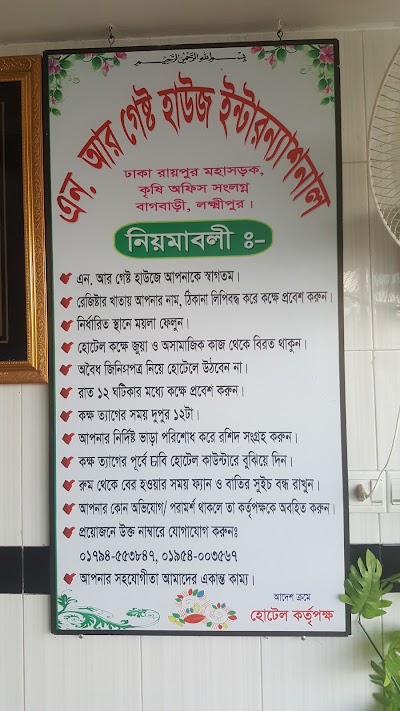 بِسْمِ اللهِ الرَّحْمٰنِ الرَّحِيْمِ
এন. আর গেষ্ট হাউজ ইন্টারন্যাশনাল
ঢাকা রায়পুর মহাসড়ক,
কৃষি অফিস সংলগ্ন
বাগবাড়ী, লক্ষ্মীপুর।
নিয়মাবলী ঃ-
এন. আর গেষ্ট হাউজে আপনাকে স্বাগতম।
রেজিষ্টার খাতায় আপনার নাম, ঠিকানা লিপিবদ্ধ করে কক্ষে প্রবেশ করুন।
নির্ধারিত স্থানে ময়লা ফেলুন।
হোটেল কক্ষে জুয়া ও অসামাজিক কাজ থেকে বিরত থাকুন।
অবৈধ জিনিষপত্র নিয়ে হোটেলে উঠবেন না।
রাত ১২ ঘটিকার মধ্যে কক্ষে প্রবেশ করুন।
কক্ষ ত্যাগের সময় দুপুর ১২টা।
আপনার নির্দিষ্ট ভাড়া পরিশোধ করে রশিদ সংগ্রহ করুন।
কক্ষ ত্যাগের পূর্বে চাবি হোটেল কাউন্টারে বুঝিয়ে দিন।
রুম থেকে বের হওয়ার সময় ফ্যান ও বাতির সুইচ বন্ধ রাখুন।
আপনার কোন অভিযোগ/ পরামর্শ থাকলে তা কর্তৃপক্ষকে অবহিত করুন।
প্রয়োজনে উক্ত নাম্বারে যোগাযোগ করুনঃ
০১৭৯৪-৫৫৩৮৪৭, ০১৯৫৪-০০৩৫৬৭
আপনার সহযোগীতা আমাদের একান্ত কাম্য।
আদেশ ক্রমে
হোটেল কর্তৃপক্ষ